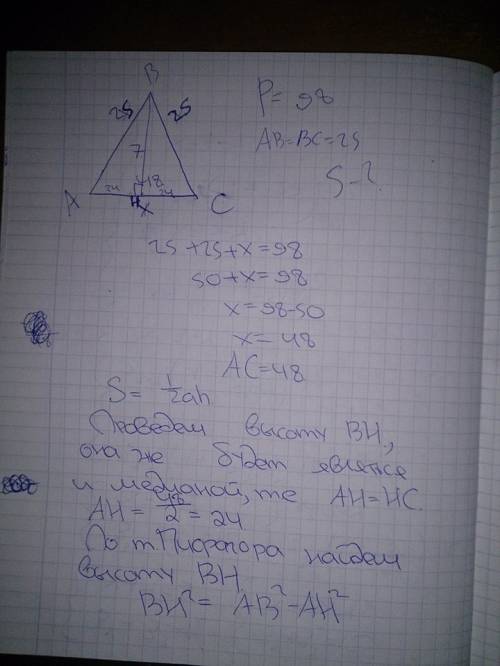 B
25 25
P = 98
AB=BC=25
S-?
7
24 48 24
A H x C
25+25+x=98
50+x=98
x=98-50
x=48
AC=48
S= 1/2 ah
Проведем высоту BH,
она же будет являться
и медианой, те AH=HC.
AH = 48/2 = 24
По т.Пифагора найдем
высоту BH
BH²= AB²-AH²